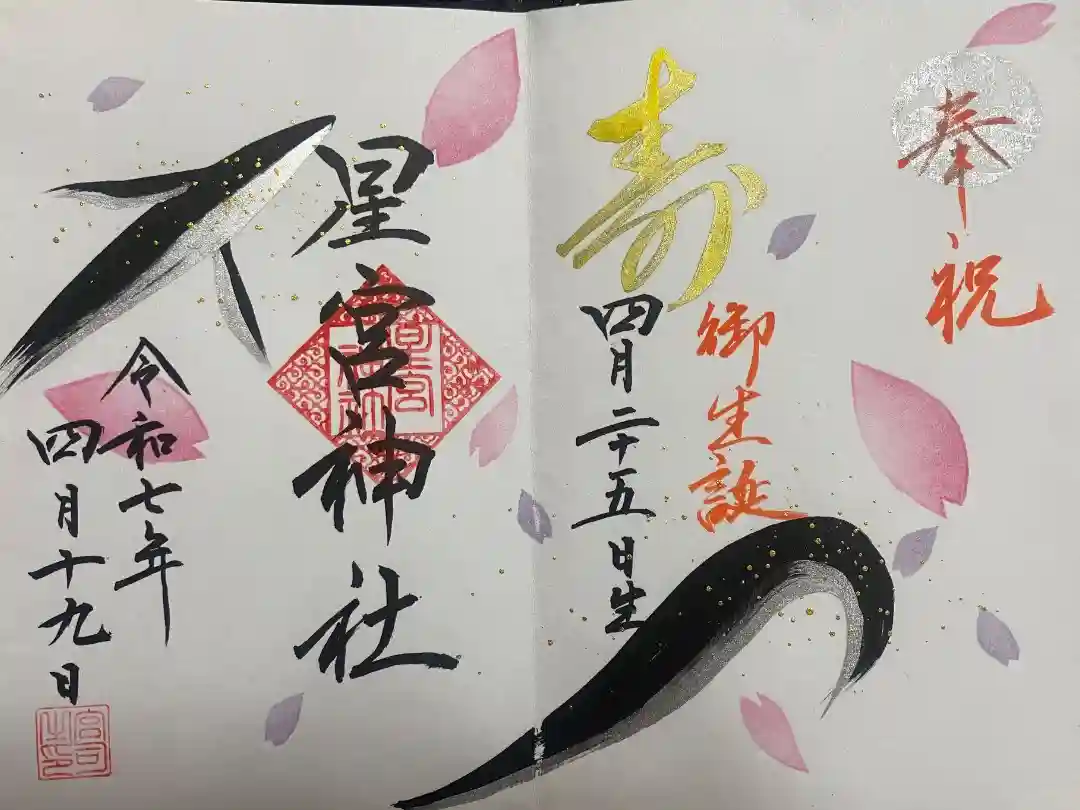 奉祝
御生誕
寿
四月二十五日生
星宮神社
令和七年
四月十九日
宮司
之印